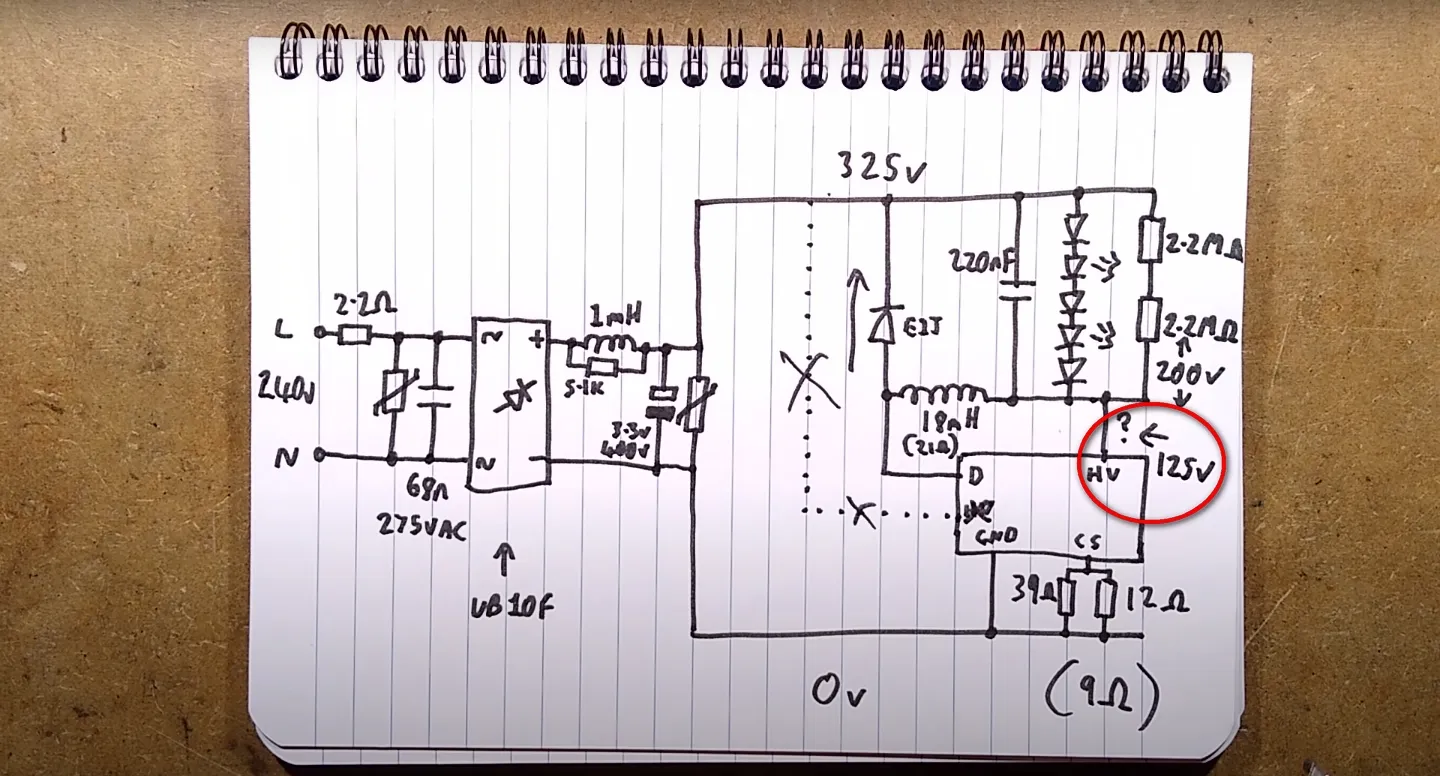 325v
2.2Ω
L
240v
N
68n
275VAC
UB10F
~
~
+
-
1mH
5.1K
400v
E2J
220nF
2.2MΩ
2.2MΩ
200v
(21Ω)
?
125v
D
HV
GND
CS
39Ω
12Ω
0v
(9Ω)